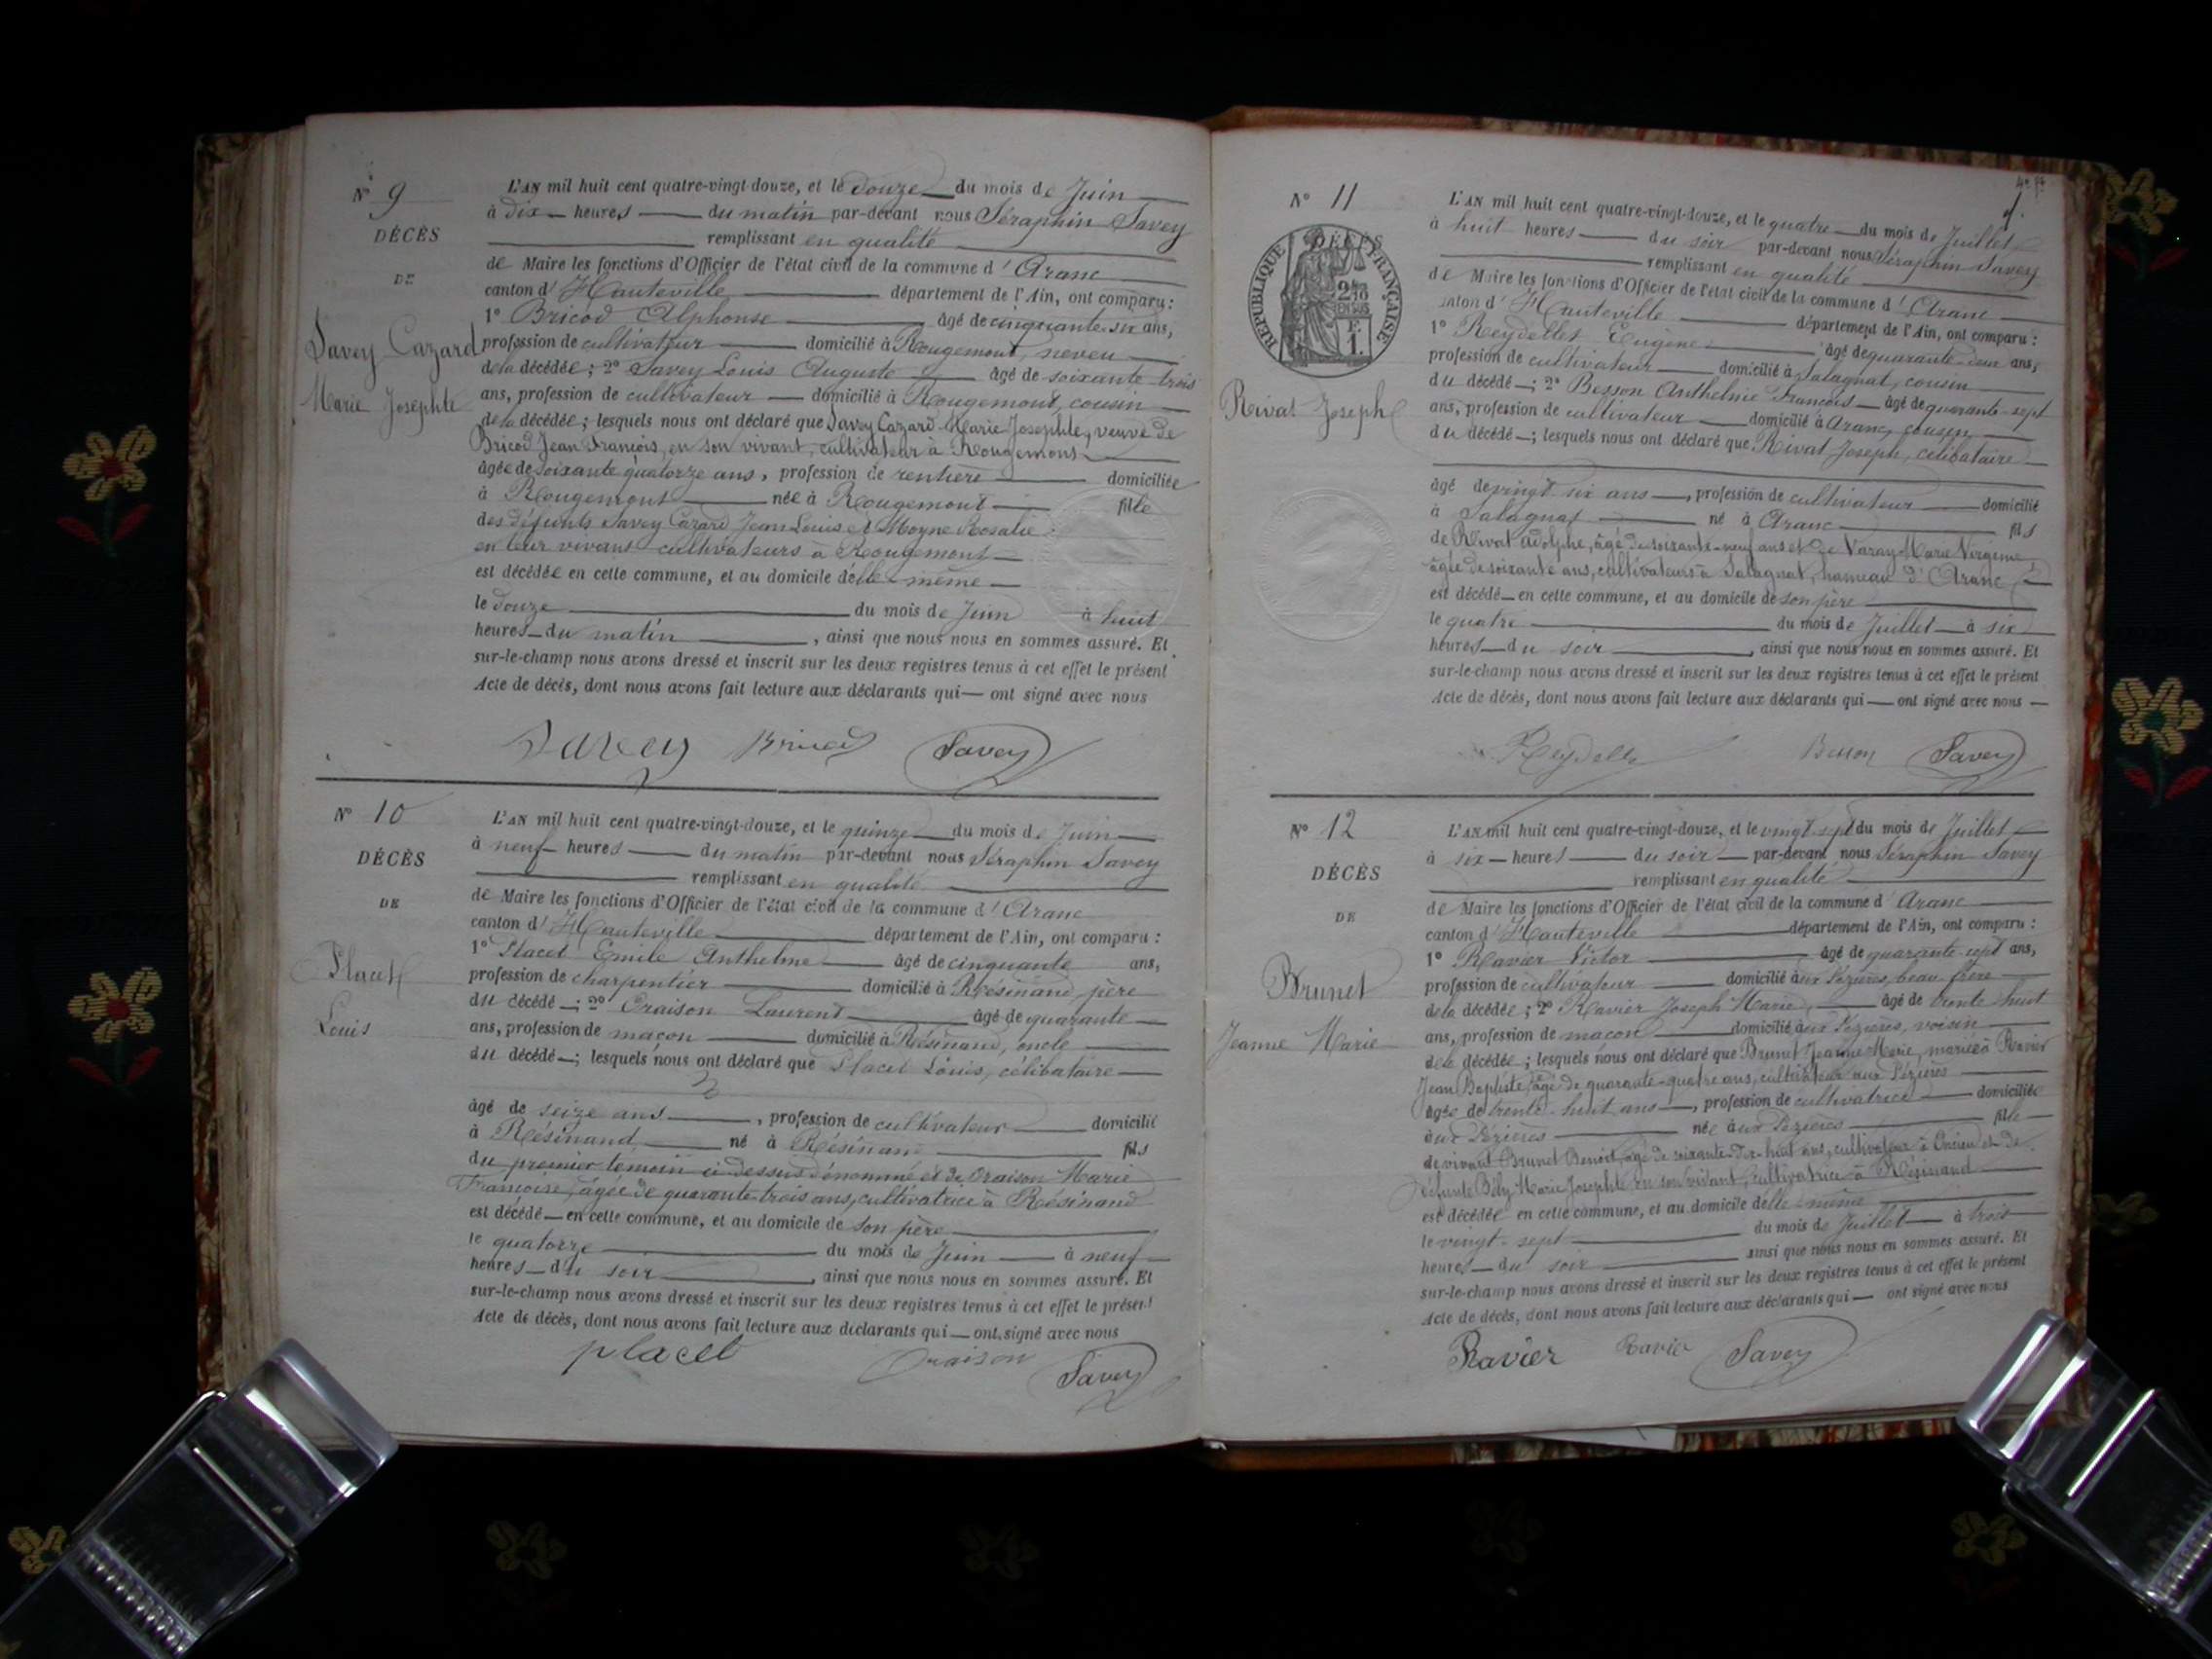 N° 9
DÉCÈS
DE
Savey Cazard
Marie Josephte
L'AN mil huit cent quatre-vingt-douze, et le douze du mois de Juin
à dix heures du matin par-devant nous Séraphin Savey
remplissant en qualité
de Maire les fonctions d'Officier de l'état civil de la commune d'Aranc
canton d'Hauteville département de l'Ain, ont comparu :
1° Bricod Alphonse âgé de cinquante-six ans,
profession de cultivateur domicilié à Rougemont, neveu
de la décédée ; 2° Savey Louis Auguste âgé de soixante trois
ans, profession de cultivateur domicilié à Rougemont, cousin
de la décédée ; lesquels nous ont déclaré que Savey Cazard Marie Josephte, veuve de
Bricod Jean François, en son vivant, cultivateur à Rougemont
âgée de soixante quatorze ans, profession de rentière domiciliée
à Rougemont née à Rougemont fille
des défunts Savey Cazard Jean Louis et Moyne Rosalie
en leur vivant cultivateurs à Rougemont
est décédée en cette commune, et au domicile d'elle-même
le douze du mois de Juin à huit
heures du matin, ainsi que nous nous en sommes assuré. Et
sur-le-champ nous avons dressé et inscrit sur les deux registres tenus à cet effet le présent
Acte de décès, dont nous avons fait lecture aux déclarants qui ont signé avec nous
Savey Bricod Savey
N° 10
DÉCÈS
DE
Placet
Louis
L'AN mil huit cent quatre-vingt-douze, et le quinze du mois de Juin
à neuf heures du matin par-devant nous Séraphin Savey
remplissant en qualité
de Maire les fonctions d'Officier de l'état civil de la commune d'Aranc
canton d'Hauteville département de l'Ain, ont comparu :
1° Placet Emile Anthelme âgé de cinquante ans,
profession de charpentier domicilié à Résinand, père
du décédé ; 2° Oraison Laurent âgé de quarante
ans, profession de maçon domicilié à Résinand, oncle
du décédé ; lesquels nous ont déclaré que Placet Louis, célibataire
âgé de seize ans, profession de cultivateur domicilié
à Résinand né à Résinand fils
du premier témoin ci-dessus dénommé et de Oraison Marie
Françoise, âgée de quarante-trois ans, cultivatrice à Résinand
est décédé en cette commune, et au domicile de son père
le quatorze du mois de Juin à neuf
heures du soir, ainsi que nous nous en sommes assuré. Et
sur-le-champ nous avons dressé et inscrit sur les deux registres tenus à cet effet le présent
Acte de décès, dont nous avons fait lecture aux déclarants qui ont signé avec nous
placet Oraison Savey
N° 11
DÉCÈS
RÉPUBLIQUE FRANÇAISE
Rivat Joseph
L'AN mil huit cent quatre-vingt-douze, et le quatre du mois de Juillet
à huit heures du soir par-devant nous Séraphin Savey
remplissant en qualité
de Maire les fonctions d'Officier de l'état civil de la commune d'Aranc
canton d'Hauteville département de l'Ain, ont comparu :
1° Reydellet Eugène âgé de quarante-deux ans,
profession de cultivateur domicilié à Salagnat, cousin
du décédé ; 2° Besson Anthelme François âgé de quarante-sept
ans, profession de cultivateur domicilié à Aranc, cousin
du décédé ; lesquels nous ont déclaré que Rivat Joseph, célibataire
âgé de vingt six ans, profession de cultivateur domicilié
à Salagnat né à Aranc fils
de Rivat Adolphe, âgé de soixante-neuf ans et de Varay Marie Virginie
âgée de soixante ans, cultivateurs à Salagnat, hameau d'Aranc
est décédé en cette commune, et au domicile de son père
le quatre du mois de Juillet à six
heures du soir, ainsi que nous nous en sommes assuré. Et
sur-le-champ nous avons dressé et inscrit sur les deux registres tenus à cet effet le présent
Acte de décès, dont nous avons fait lecture aux déclarants qui ont signé avec nous
Reydellet Besson Savey
N° 12
DÉCÈS
DE
Brunet
Jeanne Marie
L'AN mil huit cent quatre-vingt-douze, et le vingt-sept du mois de Juillet
à six heures du soir par-devant nous Séraphin Savey
remplissant en qualité
de Maire les fonctions d'Officier de l'état civil de la commune d'Aranc
canton d'Hauteville département de l'Ain, ont comparu :
1° Ravier Victor âgé de quarante-sept ans,
profession de cultivateur domicilié aux Pézières, beau frère
de la décédée ; 2° Ravier Joseph Marie, âgé de trente huit
ans, profession de maçon domicilié aux Pézières, voisin
de la décédée ; lesquels nous ont déclaré que Brunet Jeanne Marie, mariée à Ravier
Jean Baptiste, âgé de quarante-quatre ans, cultivateur aux Pézières
âgée de trente-huit ans, profession de cultivatrice domiciliée
aux Pézières née aux Pézières fille
de vivant Brunet Benoît, âgé de soixante-dix-huit ans, cultivateur à et de
défunte Bély Marie Josephte en son vivant, cultivatrice à Résinand
est décédée en cette commune, et au domicile d'elle-même
le vingt-sept du mois de Juillet à trois
heures du soir ainsi que nous nous en sommes assuré. Et
sur-le-champ nous avons dressé et inscrit sur les deux registres tenus à cet effet le présent
Acte de décès, dont nous avons fait lecture aux déclarants qui ont signé avec nous
Ravier Ravier Savey